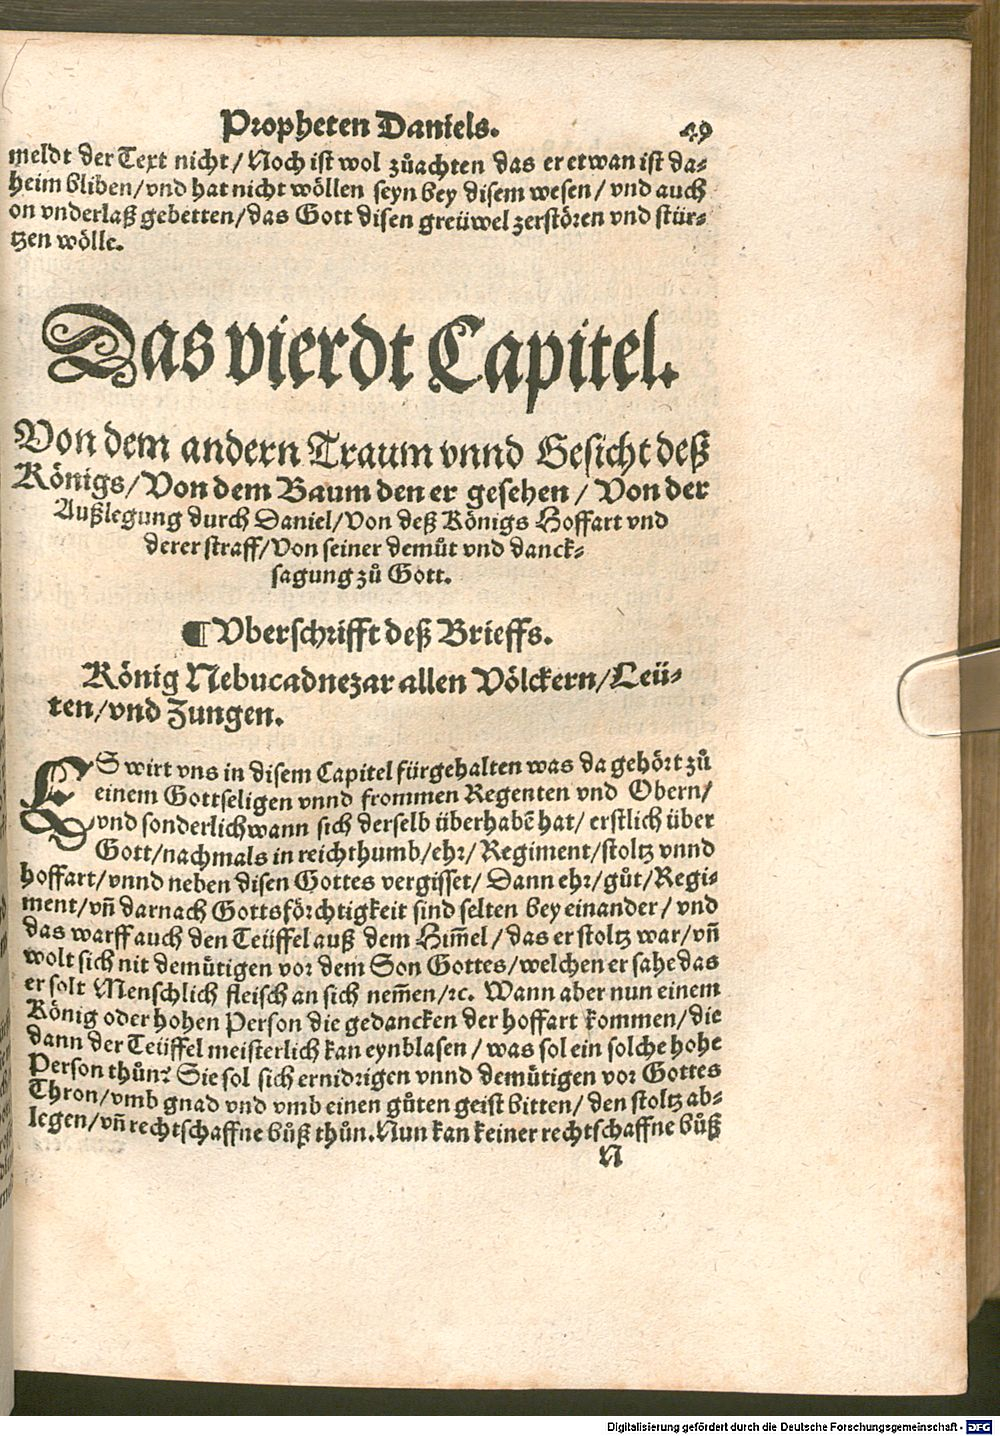 Propheten Daniels. 49
meldt der Text nicht / Noch ist wol zůachten das er etwan ist da⸗
heim bliben / vnd hat nicht wöllen seyn bey disem wesen / vnd auch
on vnderlaß gebetten / das Gott disen greüwel zerstören vnd stür⸗
tzen wölle.
Das vierdt Capitel.
Von dem andern Traum vnnd Gesicht deß
Königs / Von dem Baum den er gesehen / Von der
Außlegung durch Daniel / Von deß Königs Hoffart vnd
derer straff / Von seiner demůt vnd danck⸗
sagung zů Gott.
¶ Vberschrifft deß Brieffs.
König Nebucadnezar allen Völckern / Leü⸗
ten / vnd Zungen.
ES wirt vns in disem Capitel fürgehalten was da gehört zů
einem Gottseligen vnnd frommen Regenten vnd Obern /
vnd sonderlich wann sich derselb überhabē hat / erstlich über
Gott / nachmals in reichthumb / ehr / Regiment / stoltz vnnd
hoffart / vnnd neben disen Gottes vergisset / Dann ehr / gůt / Regi⸗
ment / vñ darnach Gottsförchtigkeit sind selten bey einander / vnd
das warff auch den Teüffel auß dem Him̄el / das er stoltz war / vñ
wolt sich nit demütigen vor dem Son Gottes / welchen er sahe das
er solt Menschlich fleisch an sich nem̄en / ꝛc. Wann aber nun einem
König oder hohen Person die gedancken der hoffart kommen / die
dann der Teüffel meisterlich kan eynblasen / was sol ein solche hohe
Person thůn? Sie sol sich ernidrigen vnnd demütigen vor Gottes
Thron / vmb gnad vnd vmb einen gůten geist bitten / den stoltz ab⸗
legen / vñ rechtschaffne bůß thůn. Nun kan keiner rechtschaffne bůß
N
Digitalisierung gefördert durch die Deutsche Forschungsgemeinschaft - DFG